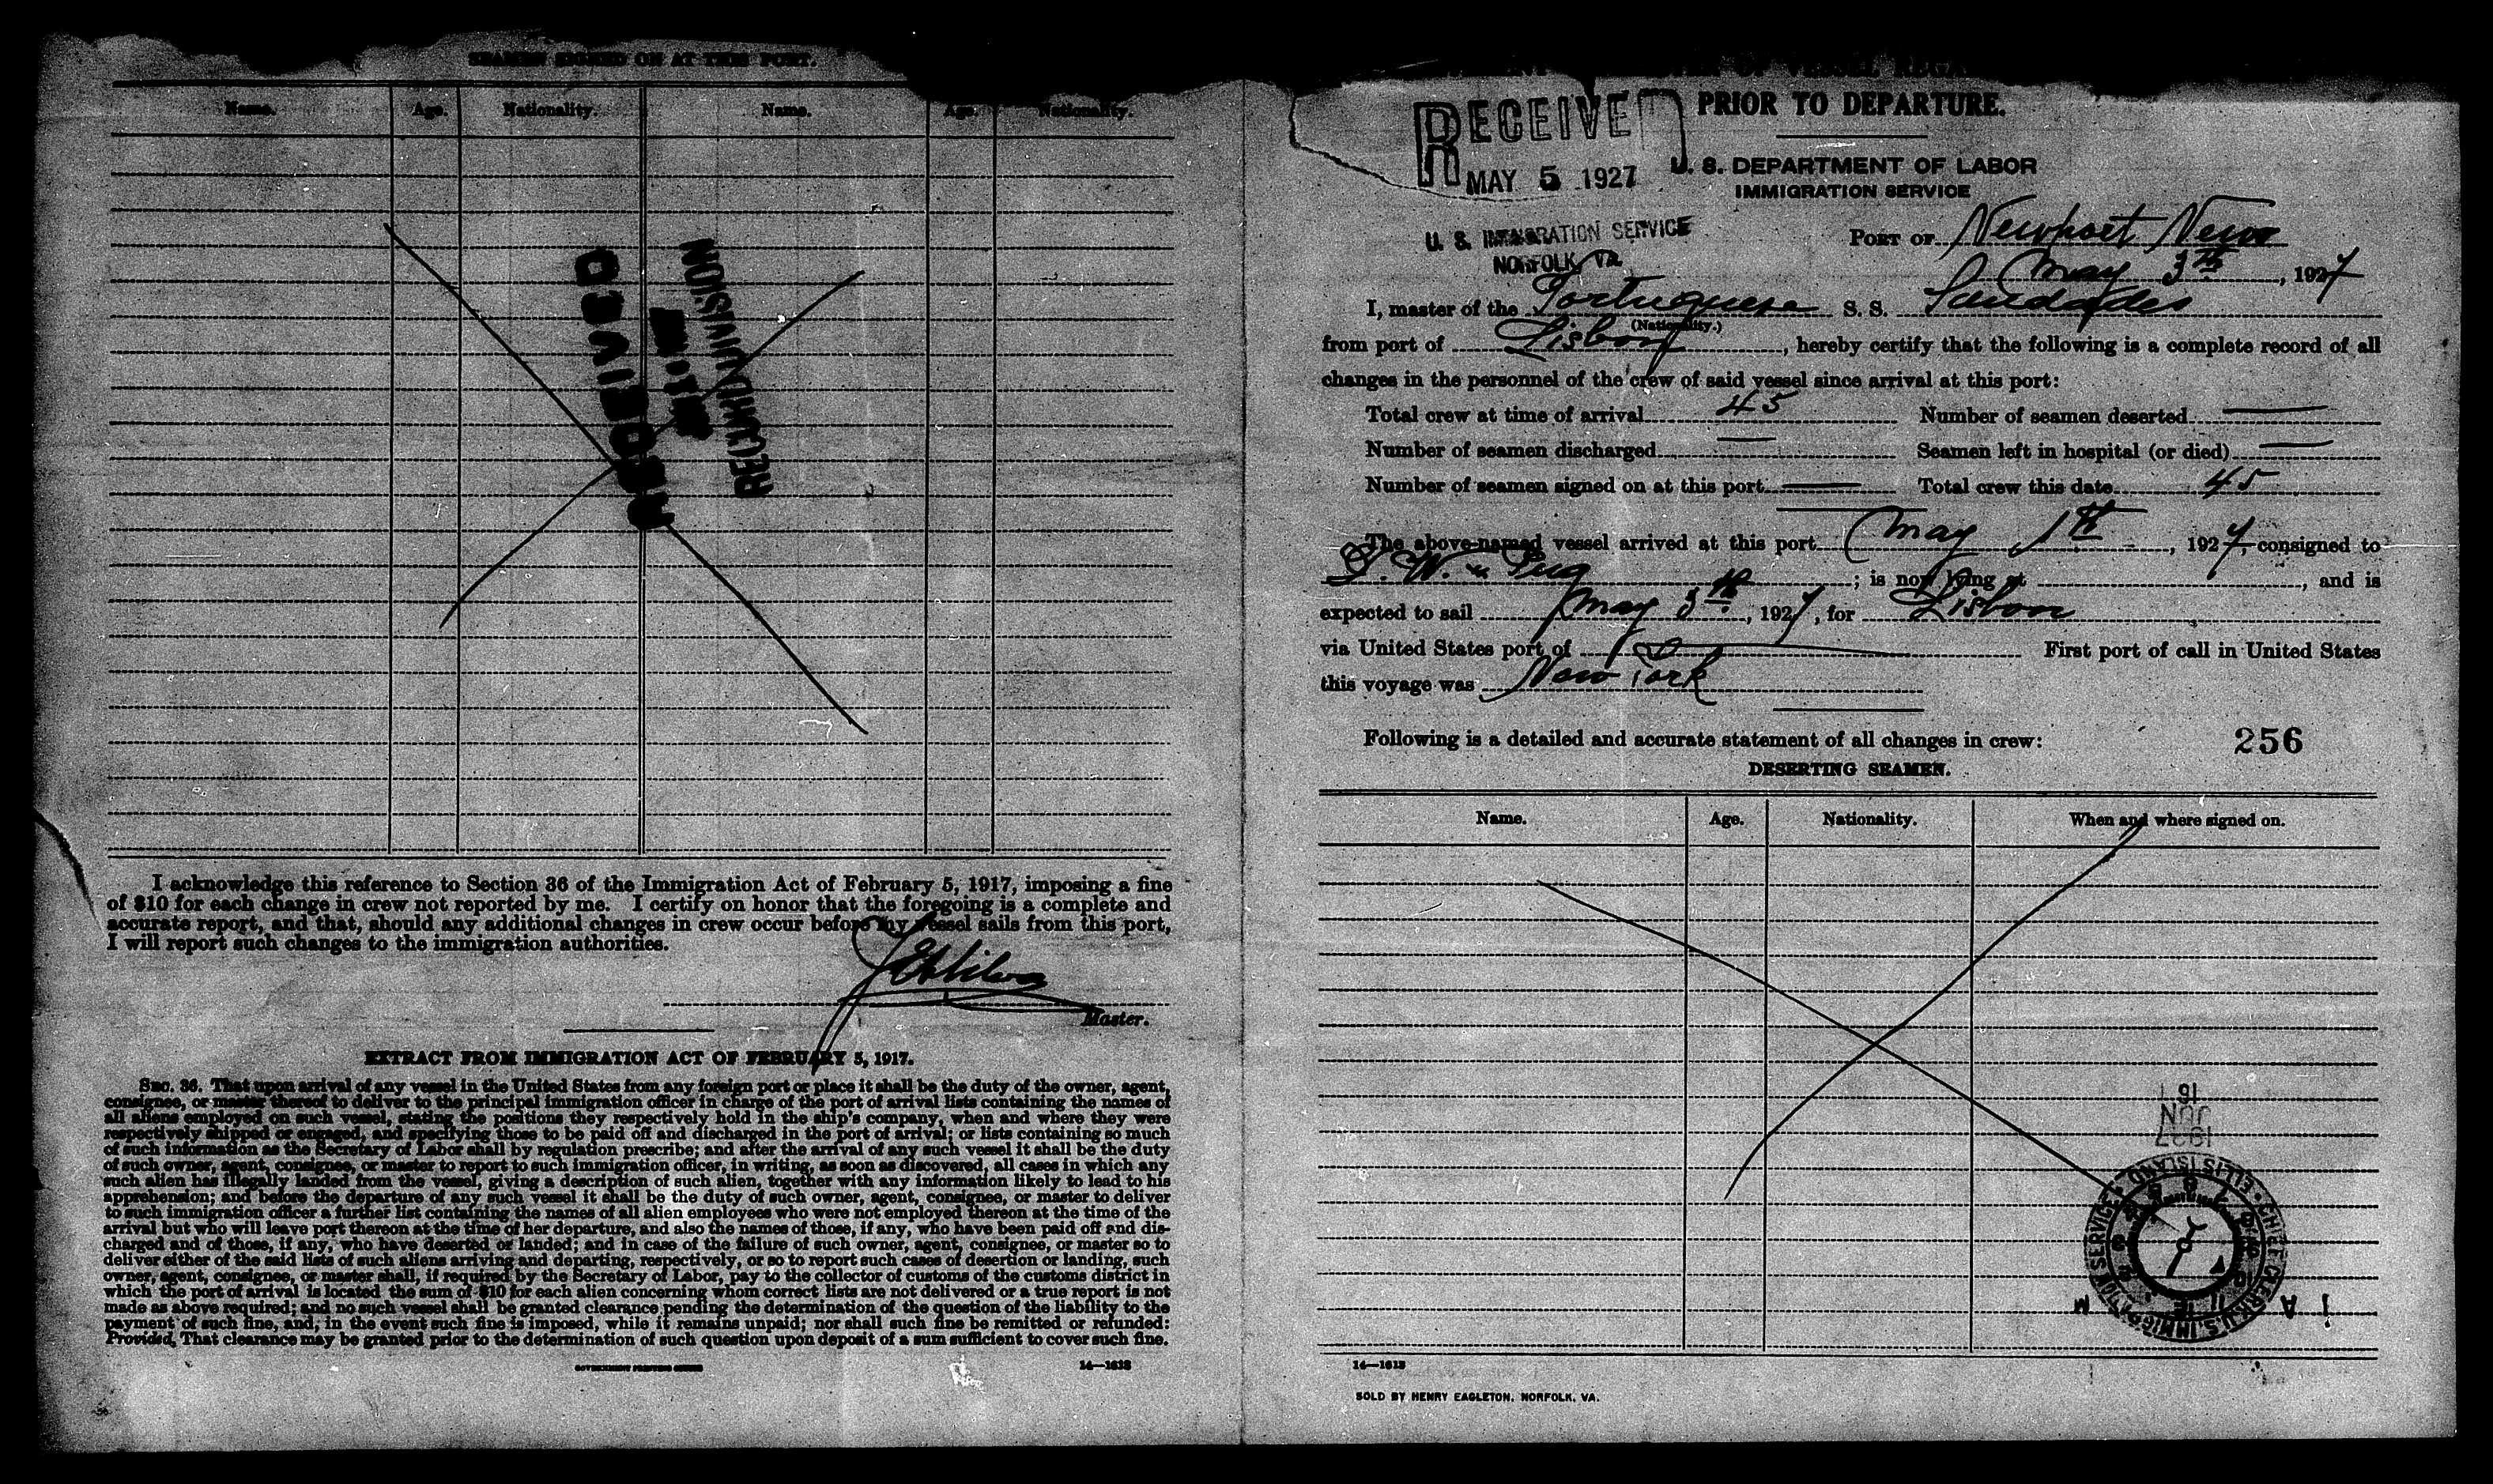 SEAMEN SIGNED ON AT THIS PORT.
Name. Age. Nationality. Name. Age. Nationality.
RECEIVED
RECORD DIVISION
I acknowledge this reference to Section 36 of the Immigration Act of February 5, 1917, imposing a fine
of $10 for each change in crew not reported by me. I certify on honor that the foregoing is a complete and
accurate report, and that, should any additional changes in crew occur before my vessel sails from this port,
I will report such changes to the immigration authorities.
Master.
EXTRACT FROM IMMIGRATION ACT OF FEBRUARY 5, 1917.
SEC. 36. That upon arrival of any vessel in the United States from any foreign port or place it shall be the duty of the owner, agent,
consignee, or master thereof to deliver to the principal immigration officer in charge of the port of arrival lists containing the names of
all aliens employed on such vessel, stating the positions they respectively hold in the ship's company, when and where they were
respectively shipped or engaged, and specifying those to be paid off and discharged in the port of arrival; or lists containing so much
of such information as the Secretary of Labor shall by regulation prescribe; and after the arrival of any such vessel it shall be the duty
of such owner, agent, consignee, or master to report to such immigration officer, in writing, as soon as discovered, all cases in which any
such alien has illegally landed from the vessel, giving a description of such alien, together with any information likely to lead to his
apprehension; and before the departure of any such vessel it shall be the duty of such owner, agent, consignee, or master to deliver
to such immigration officer a further list containing the names of all alien employees who were not employed thereon at the time of the
arrival but who will leave port thereon at the time of her departure, and also the names of those, if any, who have been paid off and dis-
charged and of those, if any, who have deserted or landed; and in case of the failure of such owner, agent, consignee, or master so to
deliver either of the said lists of such aliens arriving and departing, respectively, or so to report such cases of desertion or landing, such
owner, agent, consignee, or master shall, if required by the Secretary of Labor, pay to the collector of customs of the customs district in
which the port of arrival is located the sum of $10 for each alien concerning whom correct lists are not delivered or a true report is not
made as above required; and no such vessel shall be granted clearance pending the determination of the question of the liability to the
payment of such fine, and, in the event such fine is imposed, while it remains unpaid; nor shall such fine be remitted or refunded:
Provided, That clearance may be granted prior to the determination of such question upon deposit of a sum sufficient to cover such fine.
GOVERNMENT PRINTING OFFICE 14—1613
OF VESSEL
PRIOR TO DEPARTURE.
RECEIVED
MAY 5 1927
U. S. IMMIGRATION SERVICE
NORFOLK, VA.
U. S. DEPARTMENT OF LABOR
IMMIGRATION SERVICE
PORT OF Newport News
May 3th, 1927
I, master of the Portuguese S. S.
(Nationality.)
from port of Lisbon, hereby certify that the following is a complete record of all
changes in the personnel of the crew of said vessel since arrival at this port:
Total crew at time of arrival 45 Number of seamen deserted —
Number of seamen discharged — Seamen left in hospital (or died) —
Number of seamen signed on at this port — Total crew this date 45
The above-named vessel arrived at this port May 1th, 1927, consigned to
; is now lying at , and is
expected to sail May 3th, 1927, for Lisbon
via United States port of First port of call in United States
this voyage was New York
Following is a detailed and accurate statement of all changes in crew:
256
DESERTING SEAMEN.
Name. Age. Nationality. When and where signed on.
JUN
1927
CHIEF CLERK U.S. IMMIGRATION SERVICE ELLIS ISLAND
14—1613
SOLD BY HENRY EAGLETON, NORFOLK, VA.